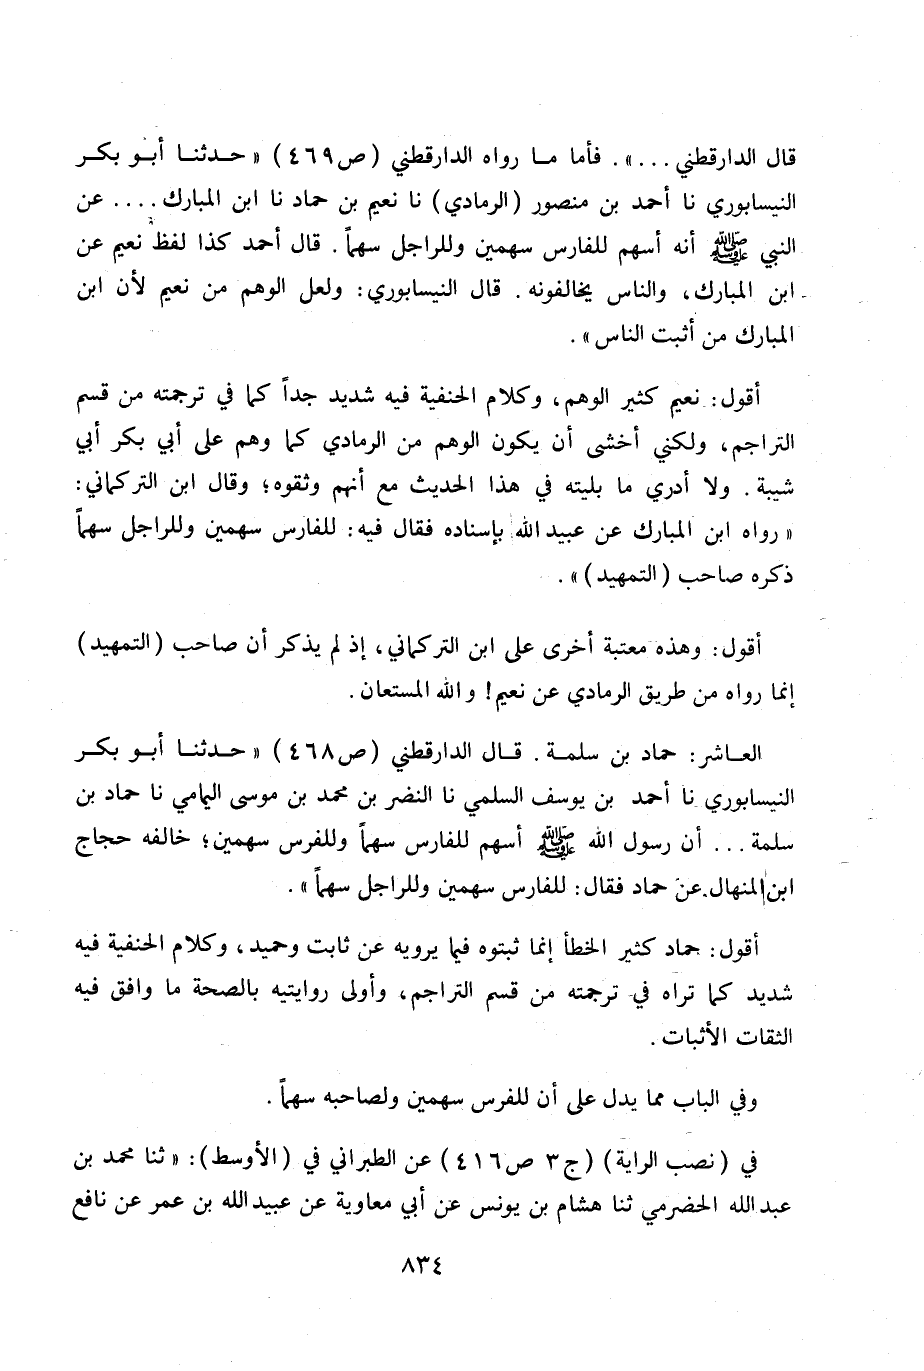 قال الدارقطني ... ». فأما مـا رواه الدارقطني (ص٤٦٩) « حـدثنـا أبـو بكـر
النيسابوري نا أحمد بن منصور (الرمادي) نا نعيم بن حماد نا ابن المبارك .... عن
النبي ﷺ أنه أسهم للفارس سهمين وللراجل سهماً . قال أحمد كذا لفظ نعيم عن
ابن المبارك، والناس يخالفونه . قال النيسابوري: ولعل الوهم من نعيم لأن ابن
المبارك من أثبت الناس » .
أقول: نعيم كثير الوهم، وكلام الحنفية فيه شديد جداً كما في ترجمته من قسم
التراجم، ولكني أخشى أن يكون الوهم من الرمادي كما وهم على أبي بكر أبي
شيبة . ولا أدري ما بليته في هذا الحديث مع أنهم وثقوه؛ وقال ابن التركماني:
« رواه ابن المبارك عن عبيد الله بإسناده فقال فيه: للفارس سهمين وللراجل سهماً
ذكره صاحب (التمهيد) » .
أقول: وهذه معتبة أخرى على ابن التركماني، إذ لم يذكر أن صاحب (التمهيد)
إنما رواه من طريق الرمادي عن نعيم! والله المستعان .
العـاشر: حماد بن سلمـة . قـال الدارقطني (ص٤٦٨) « حـدثنـا أبـو بكـر
النيسابوري نا أحمد بن يوسف السلمي نا النضر بن محمد بن موسى اليامي نا حماد بن
سلمة ... أن رسول الله ﷺ أسهم للفارس سهماً وللفرس سهمين؛ خالفه حجاج
ابن المنهال عن حماد فقال: للفارس سهمين وللراجل سهماً » .
أقول: حماد كثير الخطأ إنما ثبتوه فيما يرويه عن ثابت وحميد، وكلام الحنفية فيه
شديد كما تراه في ترجمته من قسم التراجم، وأولى روايتيه بالصحة ما وافق فيه
الثقات الأثبات .
وفي الباب مما يدل على أن للفرس سهمين ولصاحبه سهماً .
في (نصب الراية) (ج٣ ص٤١٦) عن الطبراني في (الأوسط): « ثنا محمد بن
عبد الله الحضرمي ثنا هشام بن يونس عن أبي معاوية عن عبيد الله بن عمر عن نافع
٨٣٤